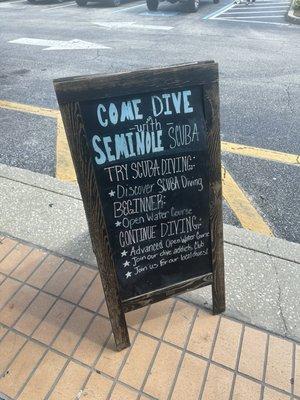 COME DIVE
with
SEMINOLE SCUBA
TRY SCUBA DIVING:
★ Discover SCUBA Diving
BEGINNER:
★ Open Water Course
CONTINUE DIVING:
★ Advanced Open Water Course
★ Join our dive addicts club
★ Join us for our local dives!